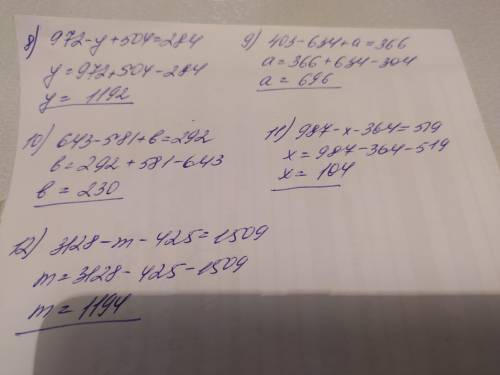 8) 972-y+504=284
y=972+504-284
y= 1192
9) 403-634+a=366
a=366+634-304
a= 696
10) 643-581+b=292
b=292+581-643
b= 230
11) 987-x-364=519
x=987-364-519
x= 104
12) 3128-m-425=1509
m=3128-425-1509
m=1194